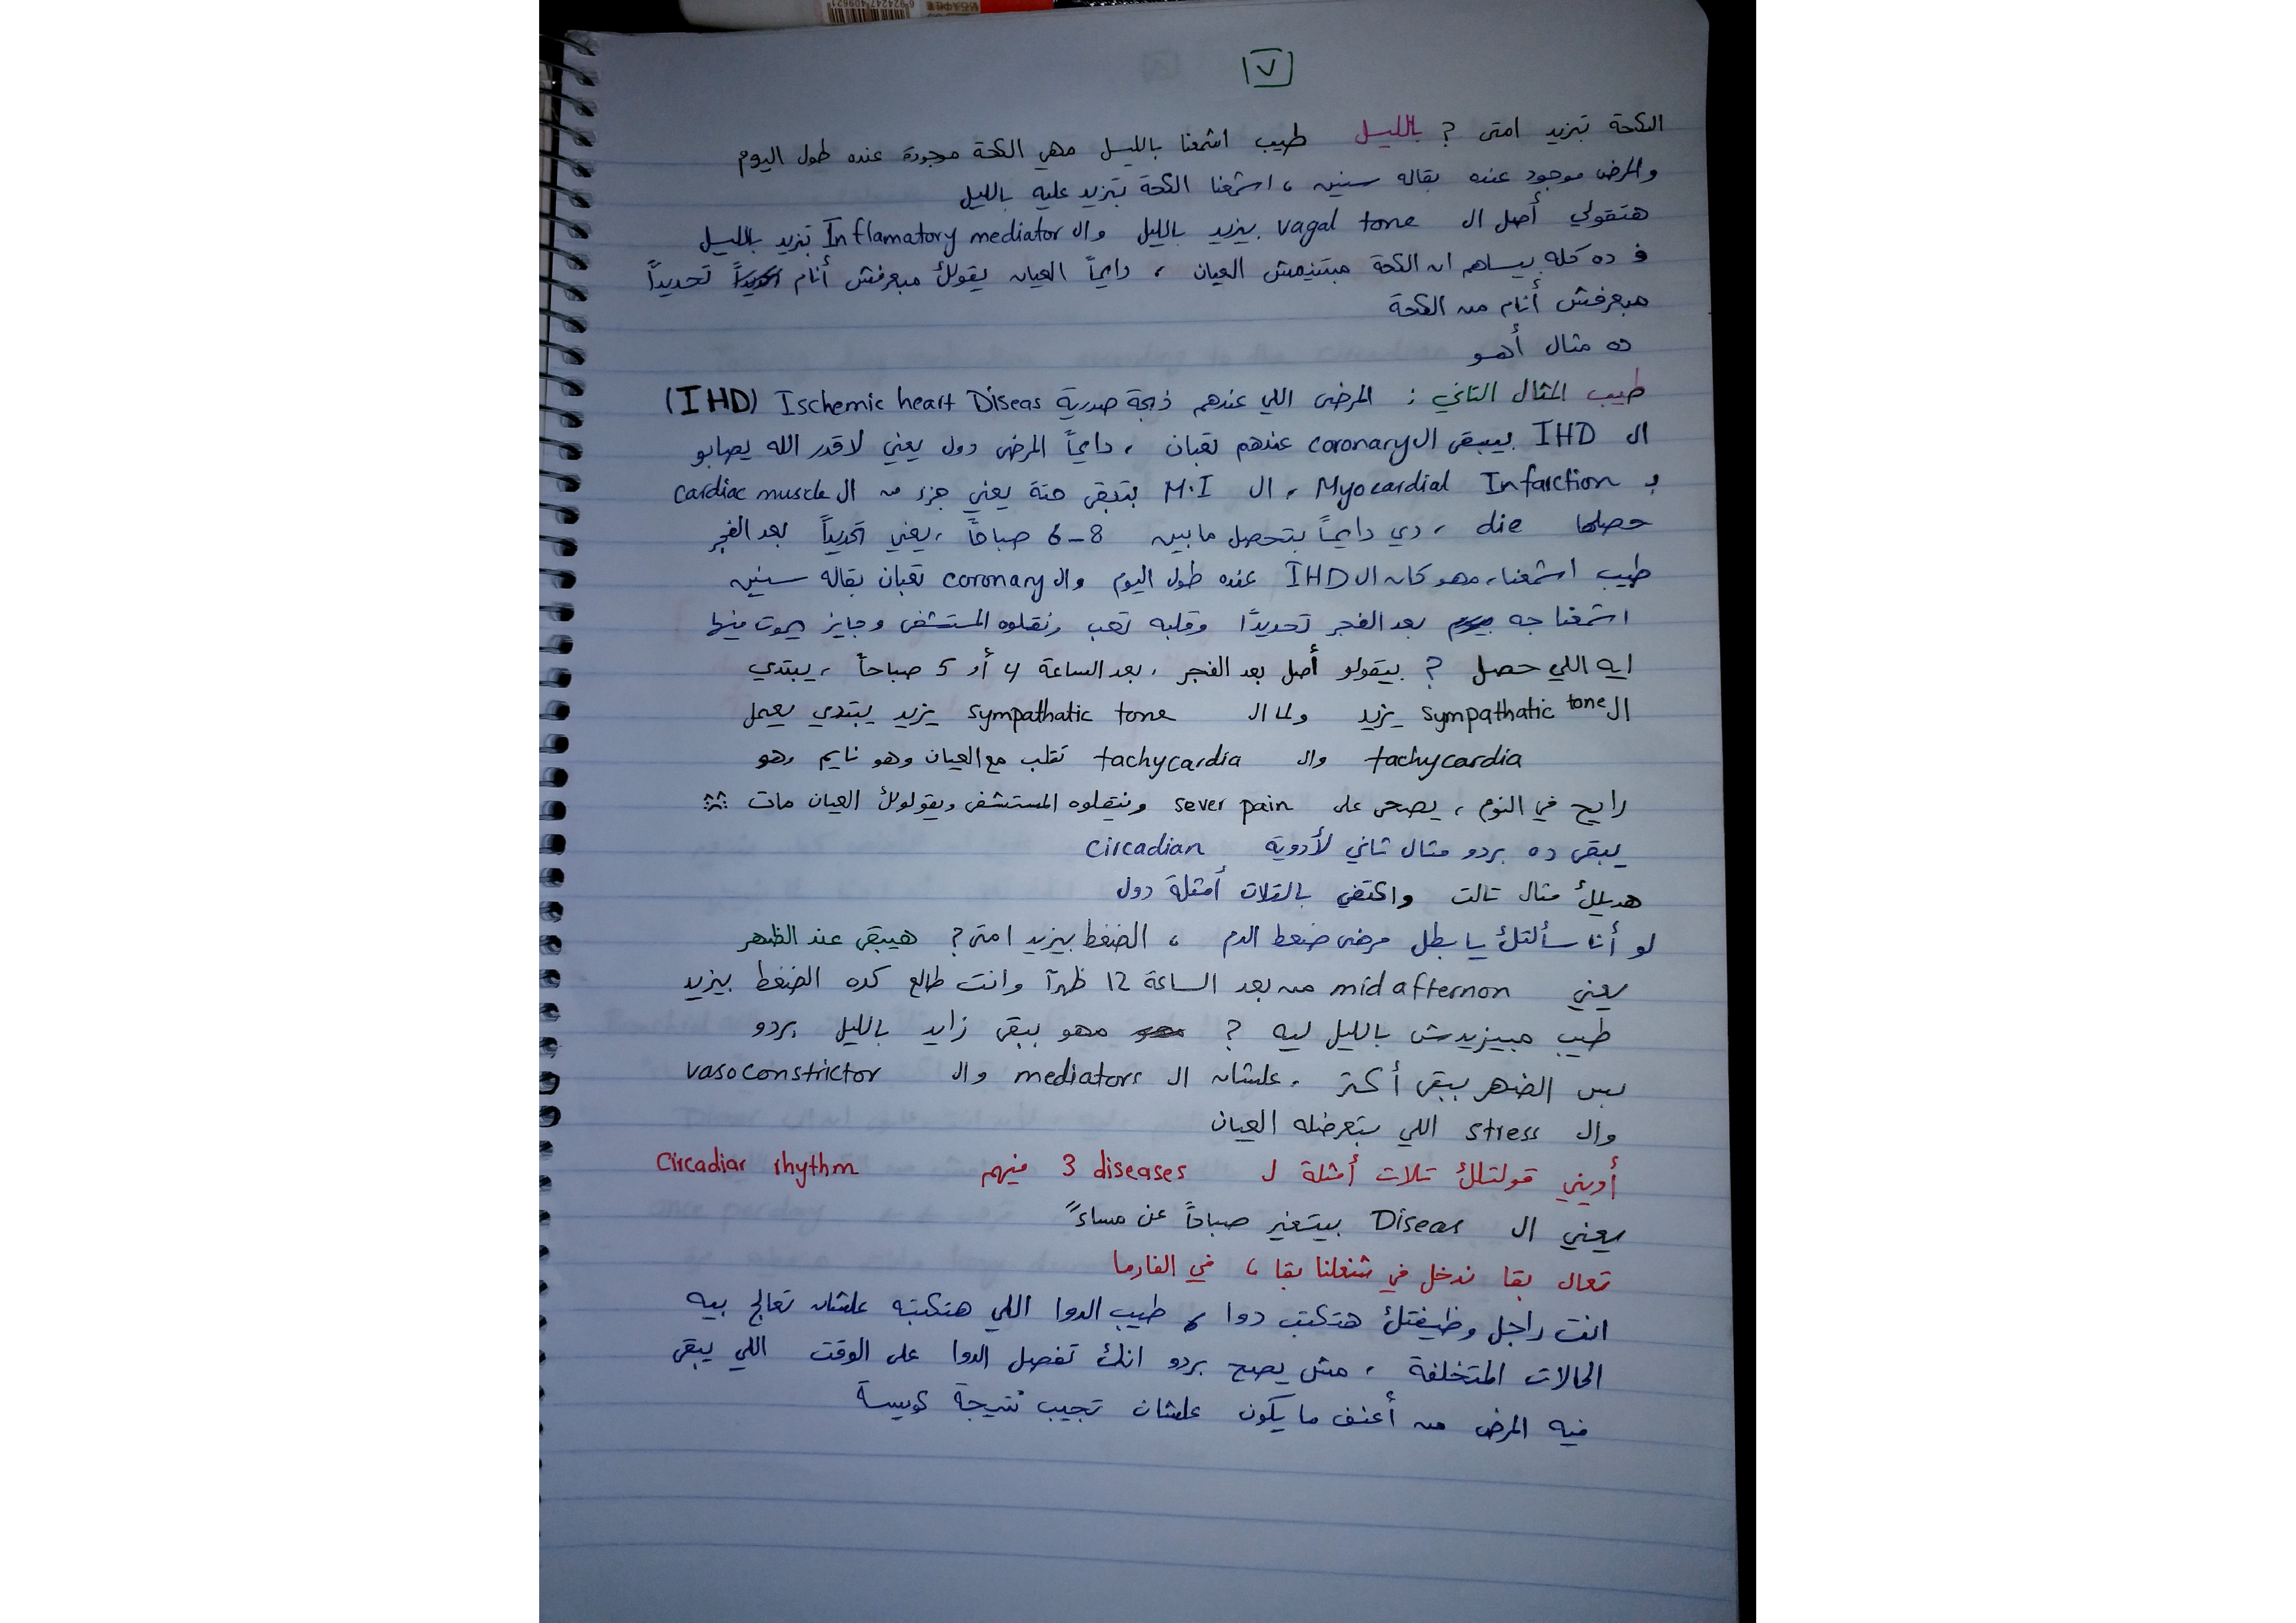 6924247409621
٧
الكحة تبزيد امتى ? بالليل طيب اشمعنا بالليل مهي الكحة موجودة عنده طول اليوم
والمرض موجود عنده بقاله سنين ، اشمعنا الكحة بتزيد عليه بالليل
هتقولي أصل ال vagal tone بيزيد بالليل وال Inflamatory mediator تزيد بالليل
ف ده كله بيساهم ان الكحة مبتنيمش العيان ، دايماً العيان يقولك مبعرفش أنام تحديداً
مبعرفش أنام من الكحة
ده مثال أهو
طيب المثال التاني : المرضى اللي عندهم ذبحة صدرية Ischemic heart Diseas (IHD)
ال IHD بيبقى ال coronary عندهم تعبان ، دايماً المرضى دول يعني لاقدر الله يصابو
بـ Myocardial Infarction ، ال M.I بتبقى حتة يعني جزء من ال cardiac muscle
حصلها die ، دي دايماً بتحصل مابين 6-8 صباحاً ، يعني تحديداً بعد الفجر
طيب اشمعنا ، مهو كان ال IHD عنده طول اليوم وال coronary تعبان بقاله سنين
اشمعنا جه بعد الفجر تحديدًا وقلبه تعب ونقلوه المستشفى وجايز يموت فيها
ايه اللي حصل ? بيقولو أصل بعد الفجر ، بعد الساعة 4 أو 5 صباحاً ، يبتدي
ال sympathatic tone يزيد ولما ال sympathatic tone يزيد يبتدي يعمل
tachycardia وال tachycardia تقلب مع العيان وهو نايم وهو
رايح في النوم ، يصحى على sever pain وينقلوه المستشفى ويقولولك العيان مات
يبقى ده بردو مثال تاني لأدوية circadian
هديلك مثال تالت واكتفي بالتلات أمثلة دول
لو أنا سألتك يا بطل مرضى ضغط الدم ، الضغط بيزيد امتى ? هيبقى عند الظهر
يعني mid afternon من بعد الساعة 12 ظهراً وانت طالع كده الضغط بيزيد
طيب مبيزيدش بالليل ليه ? مهو بيبقى زايد بالليل بردو
بس الضهر بيبقى أكتر ، علشان ال mediators وال vasoconstrictor
وال stress اللي بيتعرضله العيان
أديني قولتلك تلات أمثلة ل 3 diseases فيهم Circadiar rhythm
يعني ال Diseas بيتغير صباحاً عن مساءً
تعال بقا ندخل في شغلنا بقا ، في الفارما
انت راجل وظيفتك هتكتب دوا ، طيب الدوا اللي هتكتبه علشان تعالج بيه
الحالات المتخلفة ، مش يصح بردو انك تفصل الدوا على الوقت اللي يبقى
فيه المرض من أعنف ما يكون علشان تجيب نتيجة كويسة